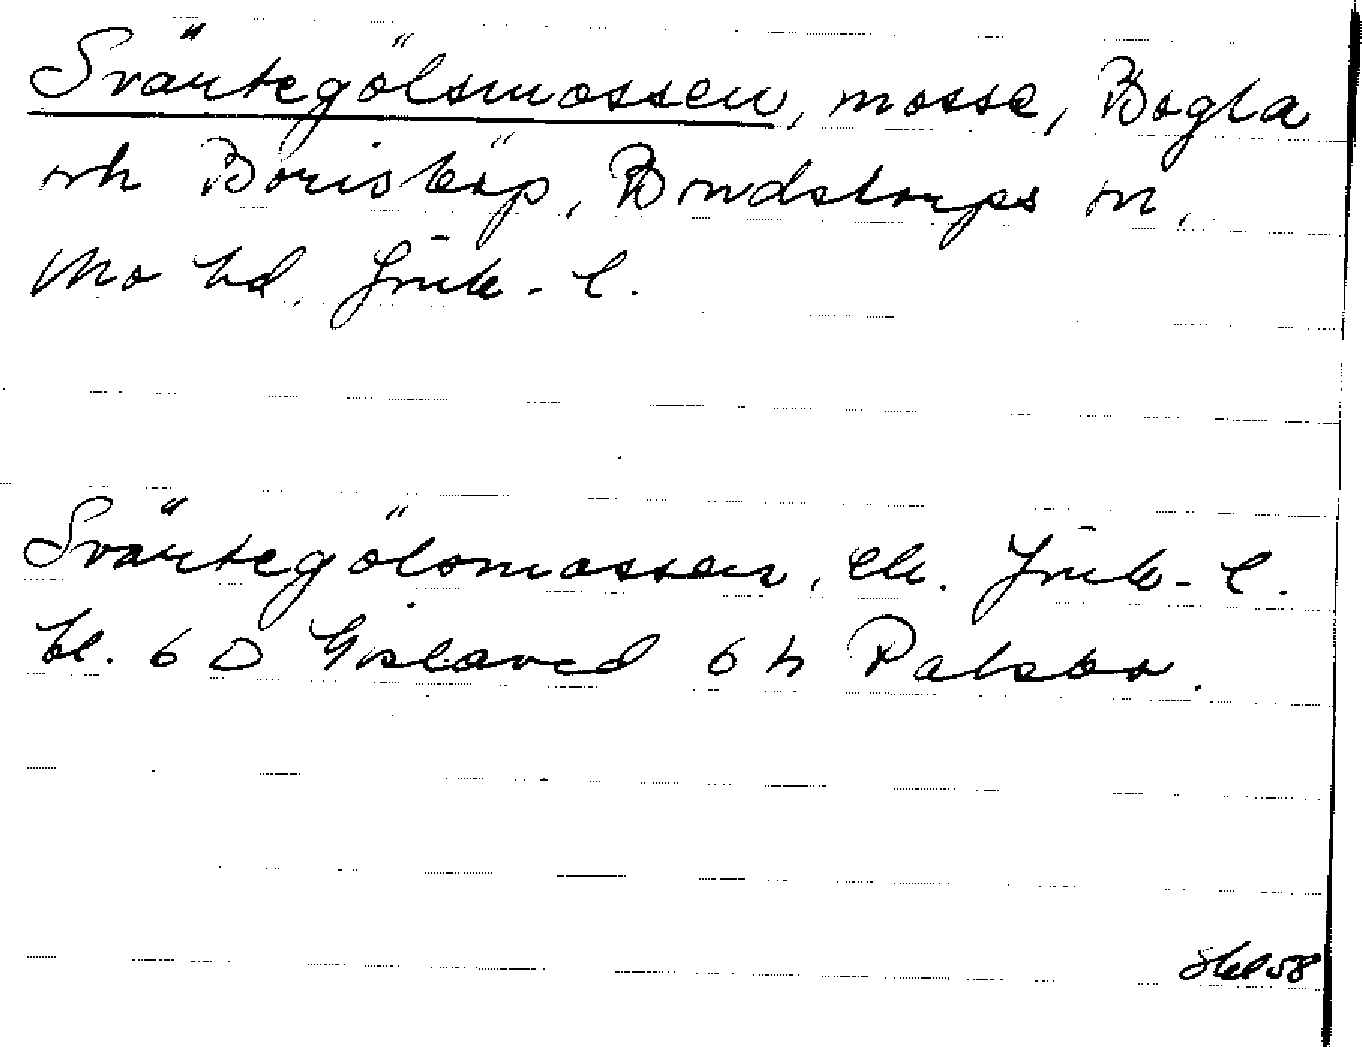 Svärtegölsmossen, mosse, Bogla
och Borisköp, Bondstorps sn,
Mo hd, Jnk. l.
Svärtegölsmossen, ek. Jnk. l.
bl. 6 D Gislaved 6 h Palsbo.